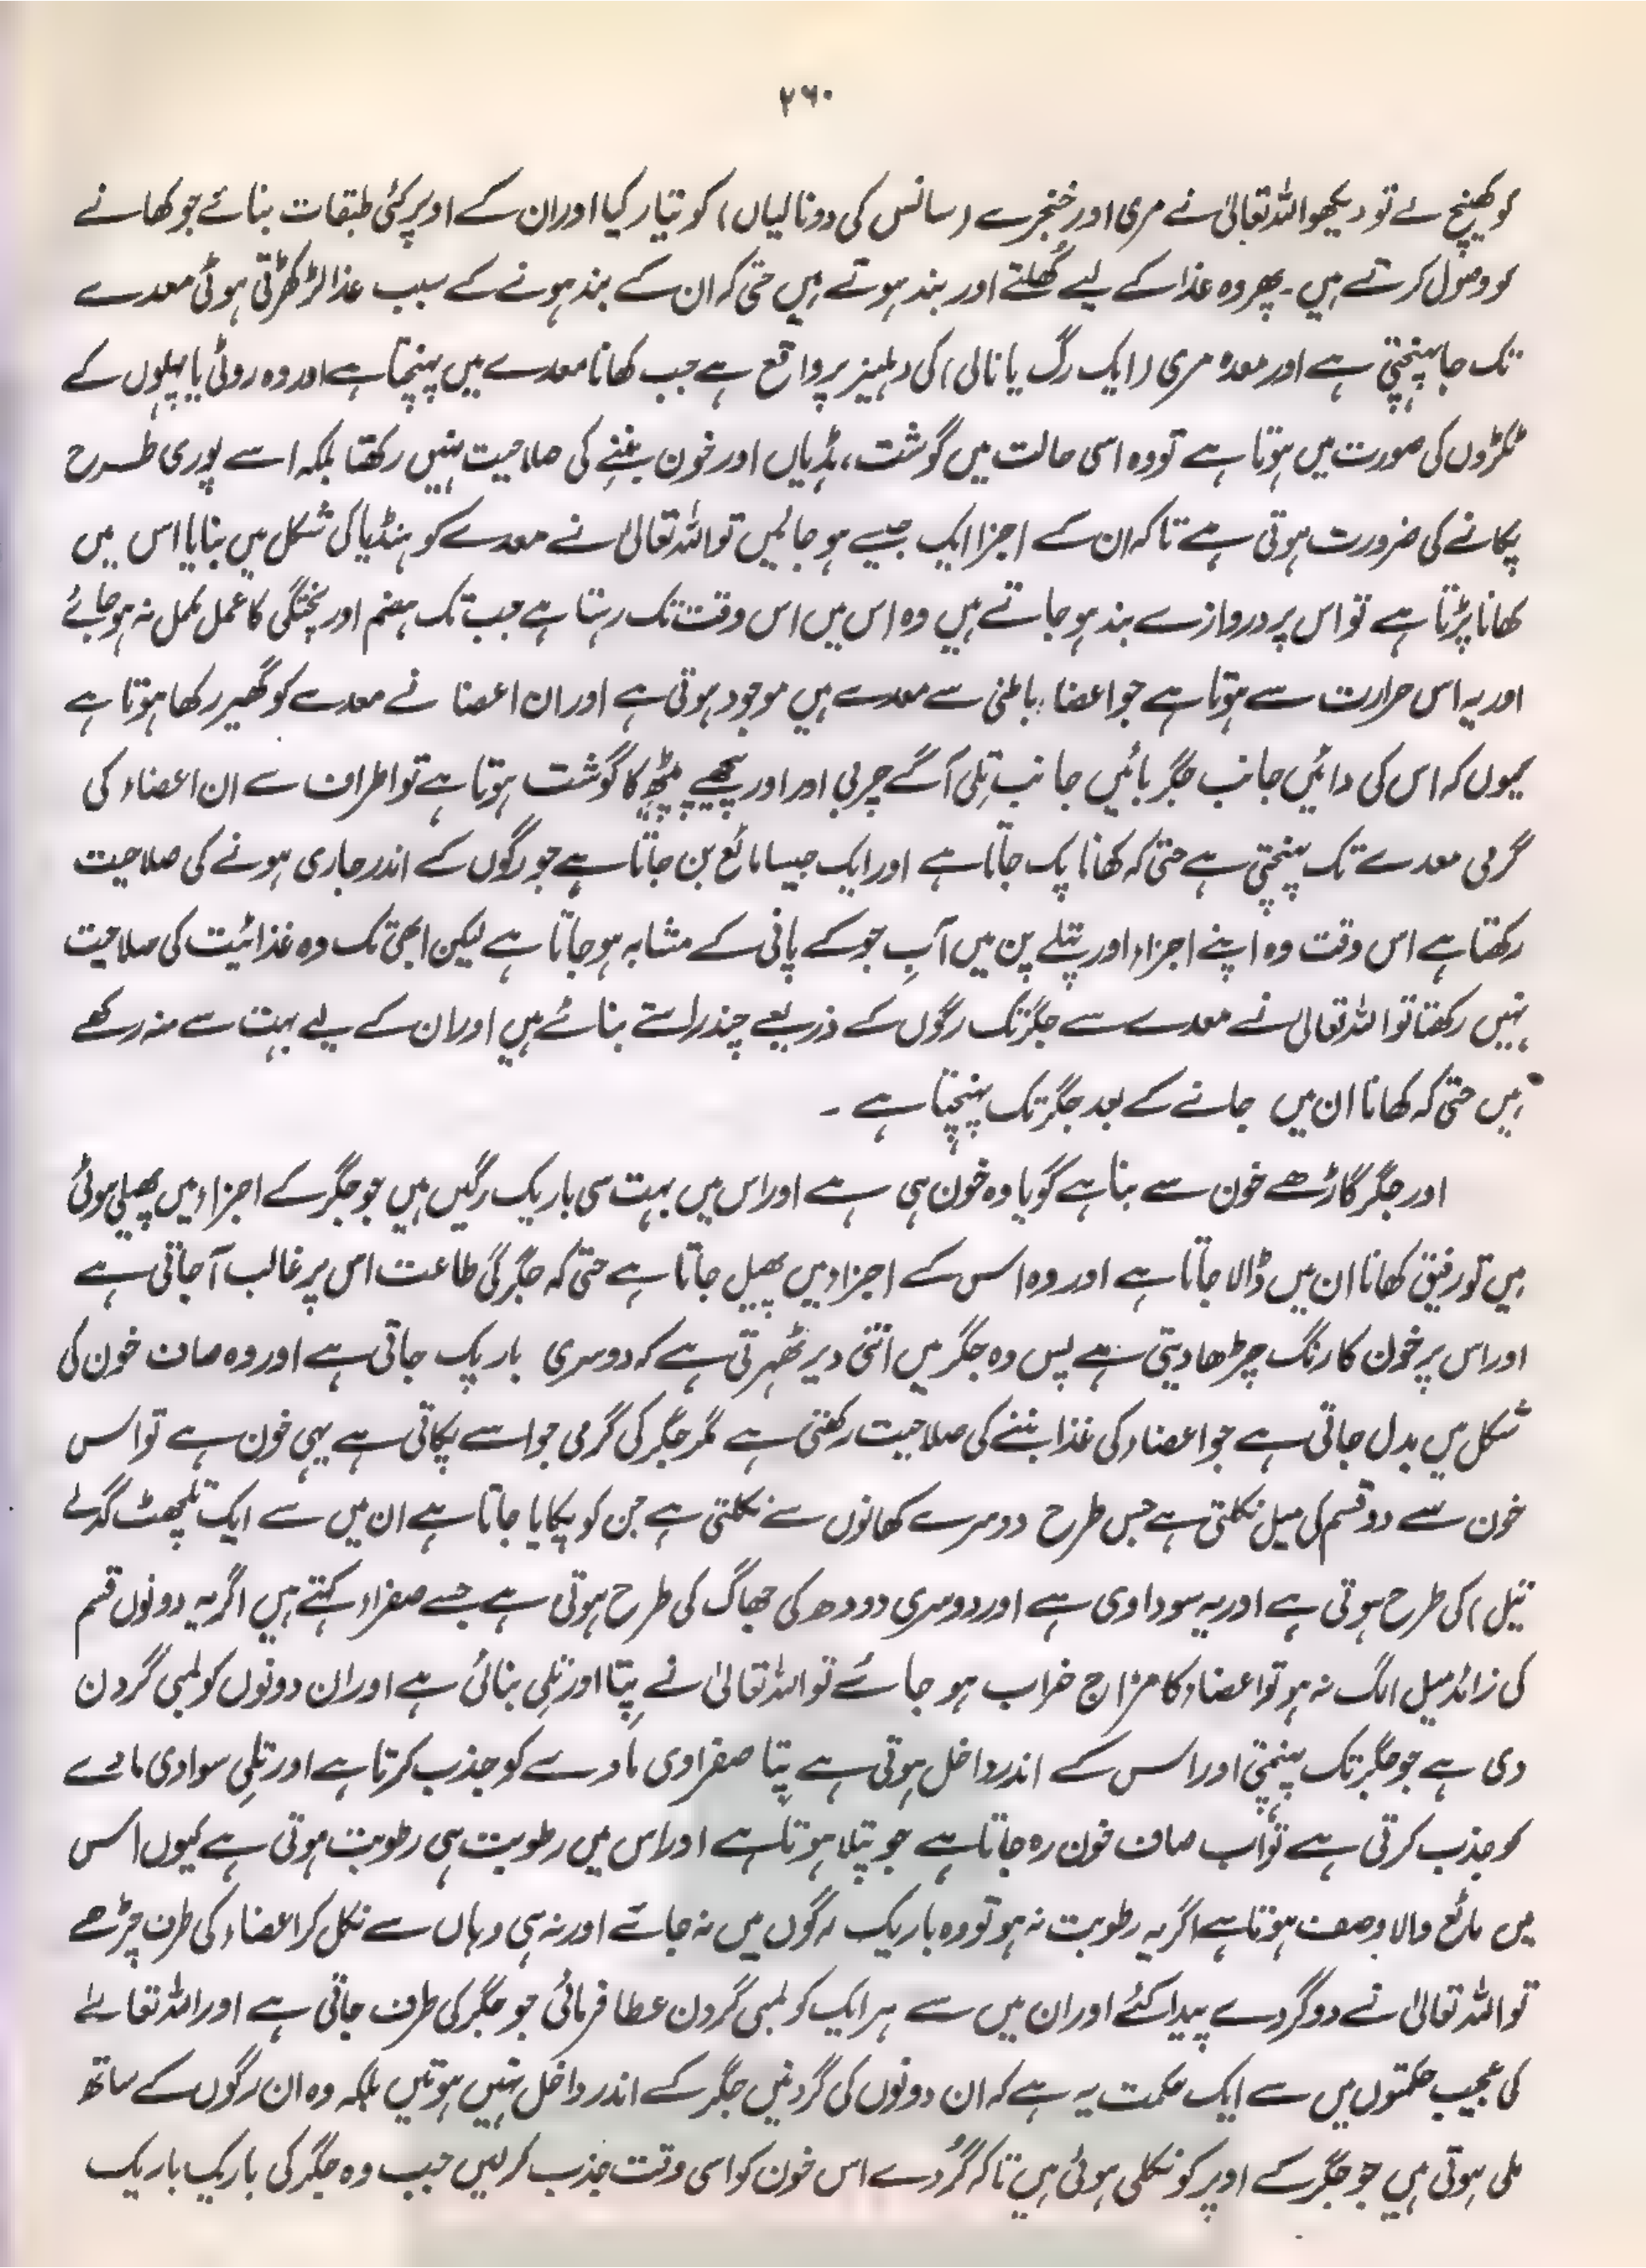 ۲۶۰
کو کھینچ لے تو دیکھو اللہ تعالیٰ نے مری اور خنجرے (سانس کی دو نالیاں) کو تیار کیا اور ان کے اوپر کئی طبقات بنائے جو کھانے
کو وصول کرتے ہیں۔ پھر وہ غذا کے لیے کُھلتے اور بند ہوتے ہیں حتیٰ کہ ان کے بند ہونے کے سبب غذا لڑکھڑتی ہوئی معدے
تک جا پہنچتی ہے اور معدہ مری (ایک رگ یا نالی) کی دہلیز پر واقع ہے جب کھانا معدے میں پہنچتا ہے اور وہ روٹی یا پھلوں کے
ٹکڑوں کی صورت میں ہوتا ہے تو وہ اسی حالت میں گوشت، ہڈیاں اور خون بننے کی صلاحیت نہیں رکھتا بلکہ اسے پوری طرح
پکانے کی ضرورت ہوتی ہے تاکہ ان کے اجزا ایک جیسے ہو جائیں تو اللہ تعالیٰ نے معدے کو ہنڈیا کی شکل میں بنایا اس میں
کھانا پڑتا ہے تو اس پر دروازے بند ہو جاتے ہیں وہ اس میں اس وقت تک رہتا ہے جب تک ہضم اور پختگی کا عمل مکمل نہ ہو جائے
اور یہ اس حرارت سے ہوتا ہے جو اعضاء باطنی سے معدے میں موجود ہوتی ہے اور ان اعضا نے معدے کو گھیر رکھا ہوتا ہے
کیوں کہ اس کی دائیں جانب جگر بائیں جانب تِلی آگے چربی اور اور پیچھے پیٹھ کا گوشت ہوتا ہے تو اطراف سے ان اعضاء کی
گرمی معدے تک پہنچتی ہے حتیٰ کہ کھانا پک جاتا ہے اور ایک جیسا مائع بن جاتا ہے جو رگوں کے اندر جاری ہونے کی صلاحیت
رکھتا ہے اس وقت وہ اپنے اجزاء اور پتلے پن میں آبِ جو کے پانی کے مشابہ ہو جاتا ہے لیکن ابھی تک وہ غذائیت کی صلاحیت
نہیں رکھتا تو اللہ تعالیٰ نے معدے سے جگر تک رگوں کے ذریعے چند راستے بنائے ہیں اور ان کے لیے بہت سے منہ رکھے
ہیں حتیٰ کہ کھانا ان میں جانے کے بعد جگر تک پہنچتا ہے ۔
اور جگر گاڑھے خون سے بنا ہے گویا وہ خون ہی ہے اور اس میں بہت سی باریک رگیں ہیں جو جگر کے اجزاء میں پھیلی ہوئی
ہیں تو رقیق کھانا ان میں ڈالا جاتا ہے اور وہ اس کے اجزاء میں پھیل جاتا ہے حتیٰ کہ جگر کی طاعت اس پر غالب آ جاتی ہے
اور اس پر خون کا رنگ چڑھا دیتی ہے پس وہ جگر میں اتنی دیر ٹھہرتی ہے کہ دوسری بار پک جاتی ہے اور وہ صاف خون کی
شکل میں بدل جاتی ہے جو اعضاء کی غذا بننے کی صلاحیت رکھتی ہے مگر جگر کی گرمی جو اسے پکاتی ہے یہی خون ہے تو اس
خون سے دو قسم کی میل نکلتی ہے جس طرح دوسرے کھانوں سے نکلتی ہے جن کو پکایا جاتا ہے ان میں سے ایک تلچھٹ گدلے
تیل) کی طرح ہوتی ہے اور یہ سوداوی ہے اور دوسری دودھ کی جھاگ کی طرح ہوتی ہے جسے صفراء کہتے ہیں اگر یہ دونوں قسم
کی زائد میل الگ نہ ہو تو اعضاء کا مزاج خراب ہو جائے تو اللہ تعالیٰ نے پِتا اور تلی بنائی ہے اور ان دونوں کو لمبی گردن
دی ہے جو جگر تک پہنچتی اور اس کے اندر داخل ہوتی ہے پتا صفراوی مادے کو جذب کرتا ہے اور تلی سوادی مادے
کو جذب کرتی ہے تو اب صاف خون رہ جاتا ہے جو پتلا ہوتا ہے اور اس میں رطوبت ہی رطوبت ہوتی ہے کیوں اس
میں مائع والا وصف ہوتا ہے اگر یہ رطوبت نہ ہو تو وہ باریک رگوں میں نہ جائے اور نہ ہی وہاں سے نکل کر اعضاء کی طرف چڑھے
تو اللہ تعالیٰ نے دو گردے پیدا کئے اور ان میں سے ہر ایک کو لمبی گردن عطا فرمائی جو جگر کی طرف جاتی ہے اور اللہ تعالےٰ
کی عجیب حکمتوں میں سے ایک حکمت یہ ہے کہ ان دونوں کی گردنیں جگر کے اندر داخل نہیں ہوتیں بلکہ وہ ان رگوں کے ساتھ
ملی ہوتی ہیں جو جگر کے اوپر کو نکلی ہوئی ہیں تاکہ گُردے اس خون کو اسی وقت جذب کر لیں جب وہ جگر کی باریک باریک